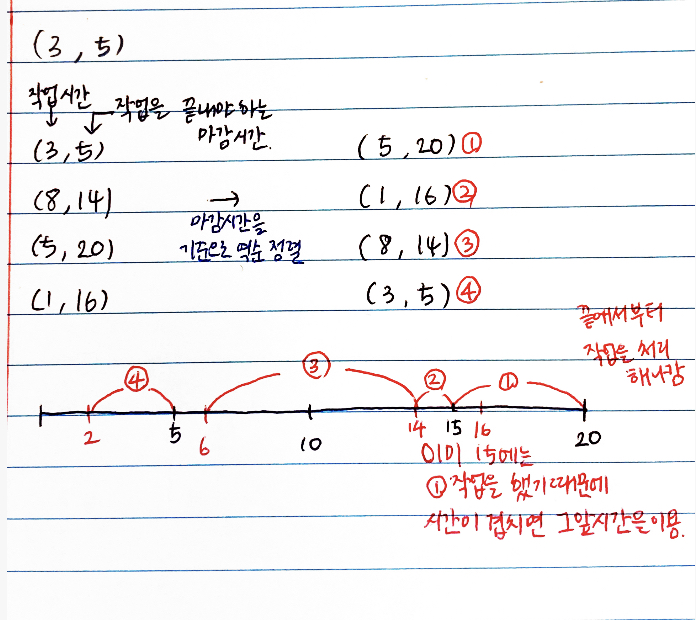 (3, 5)
작업시간
작업을 끝내야하는
마감시간.
(3, 5)
(8, 14)
(5, 20)
(1, 16)
→
마감시간을
기준으로 역순 정렬
(5, 20) ①
(1, 16) ②
(8, 14) ③
(3, 5) ④
끝에서부터
작업을 처리
해나감
④ ③ ② ①
2 5 6 10 14 15 16 20
이미 15에는
① 작업을 했기때문에
시간이 겹치면 그앞시간을이용.